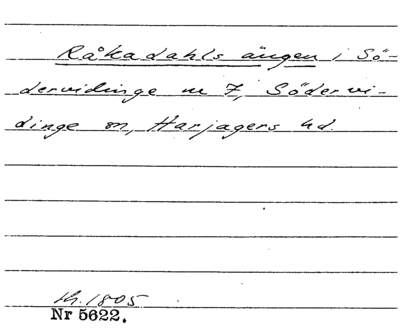 Råkadahls ängen i Sö-
dervidinge nr 7, Södervi-
dinge sn, Harjagers hd.
1805
Nr 5622.